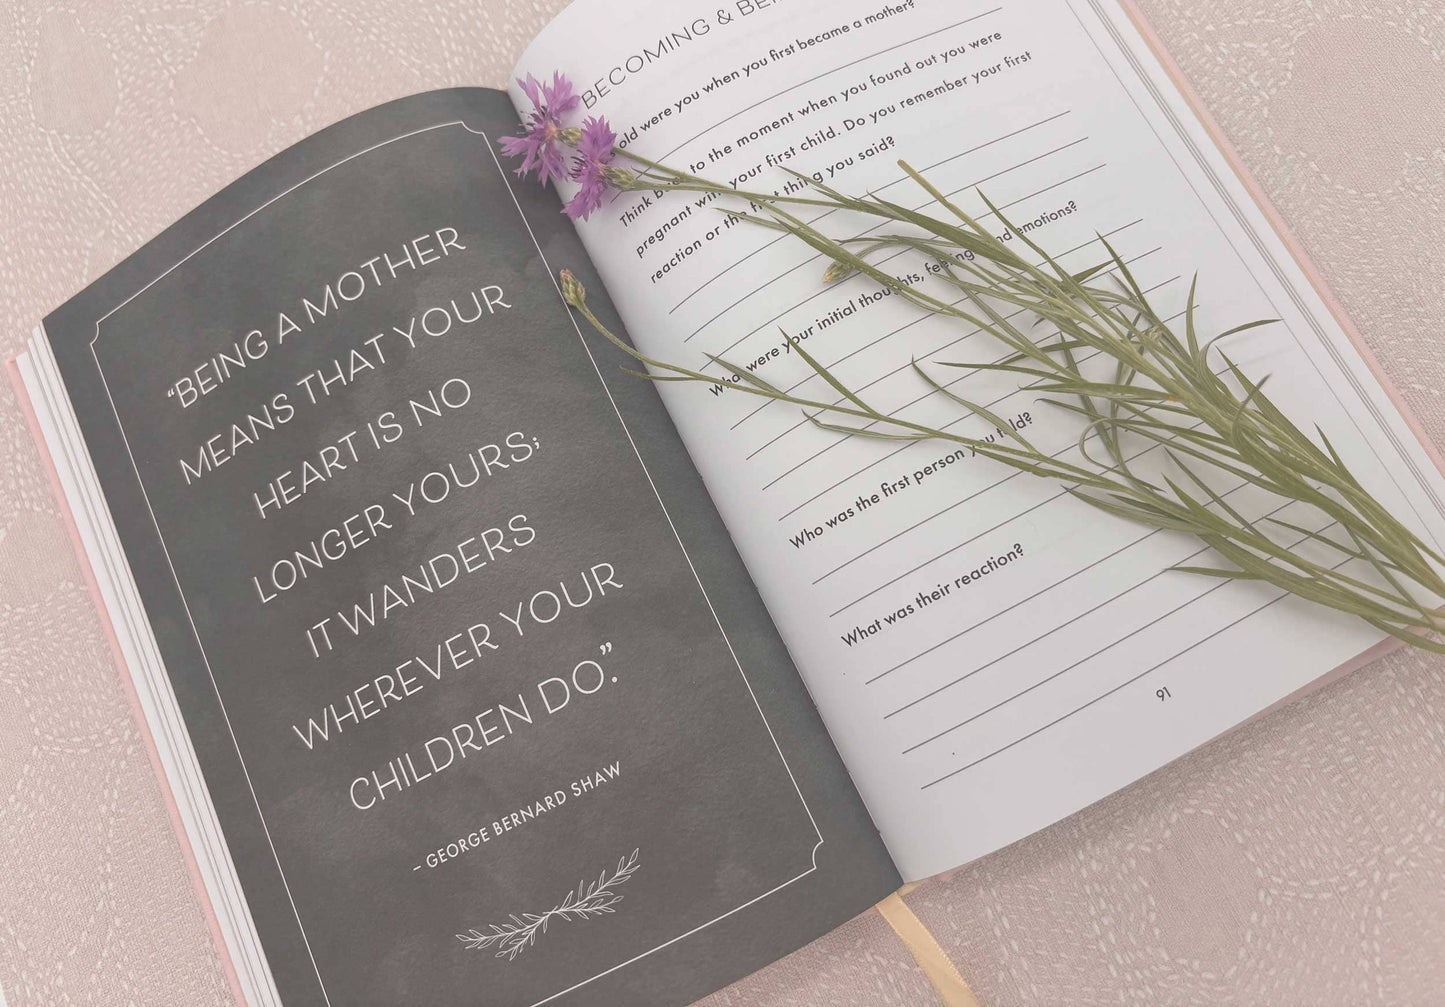 “BEING A MOTHER
MEANS THAT YOUR
HEART IS NO
LONGER YOURS;
IT WANDERS
WHEREVER YOUR
CHILDREN DO.”
– GEORGE BERNARD SHAW
BECOMING &
old were you when you first became a mother?
Think back to the moment when you found out you were
pregnant with your first child. Do you remember your first
reaction or the first thing you said?
What were your initial thoughts, feelings and emotions?
Who was the first person you told?
What was their reaction?
91